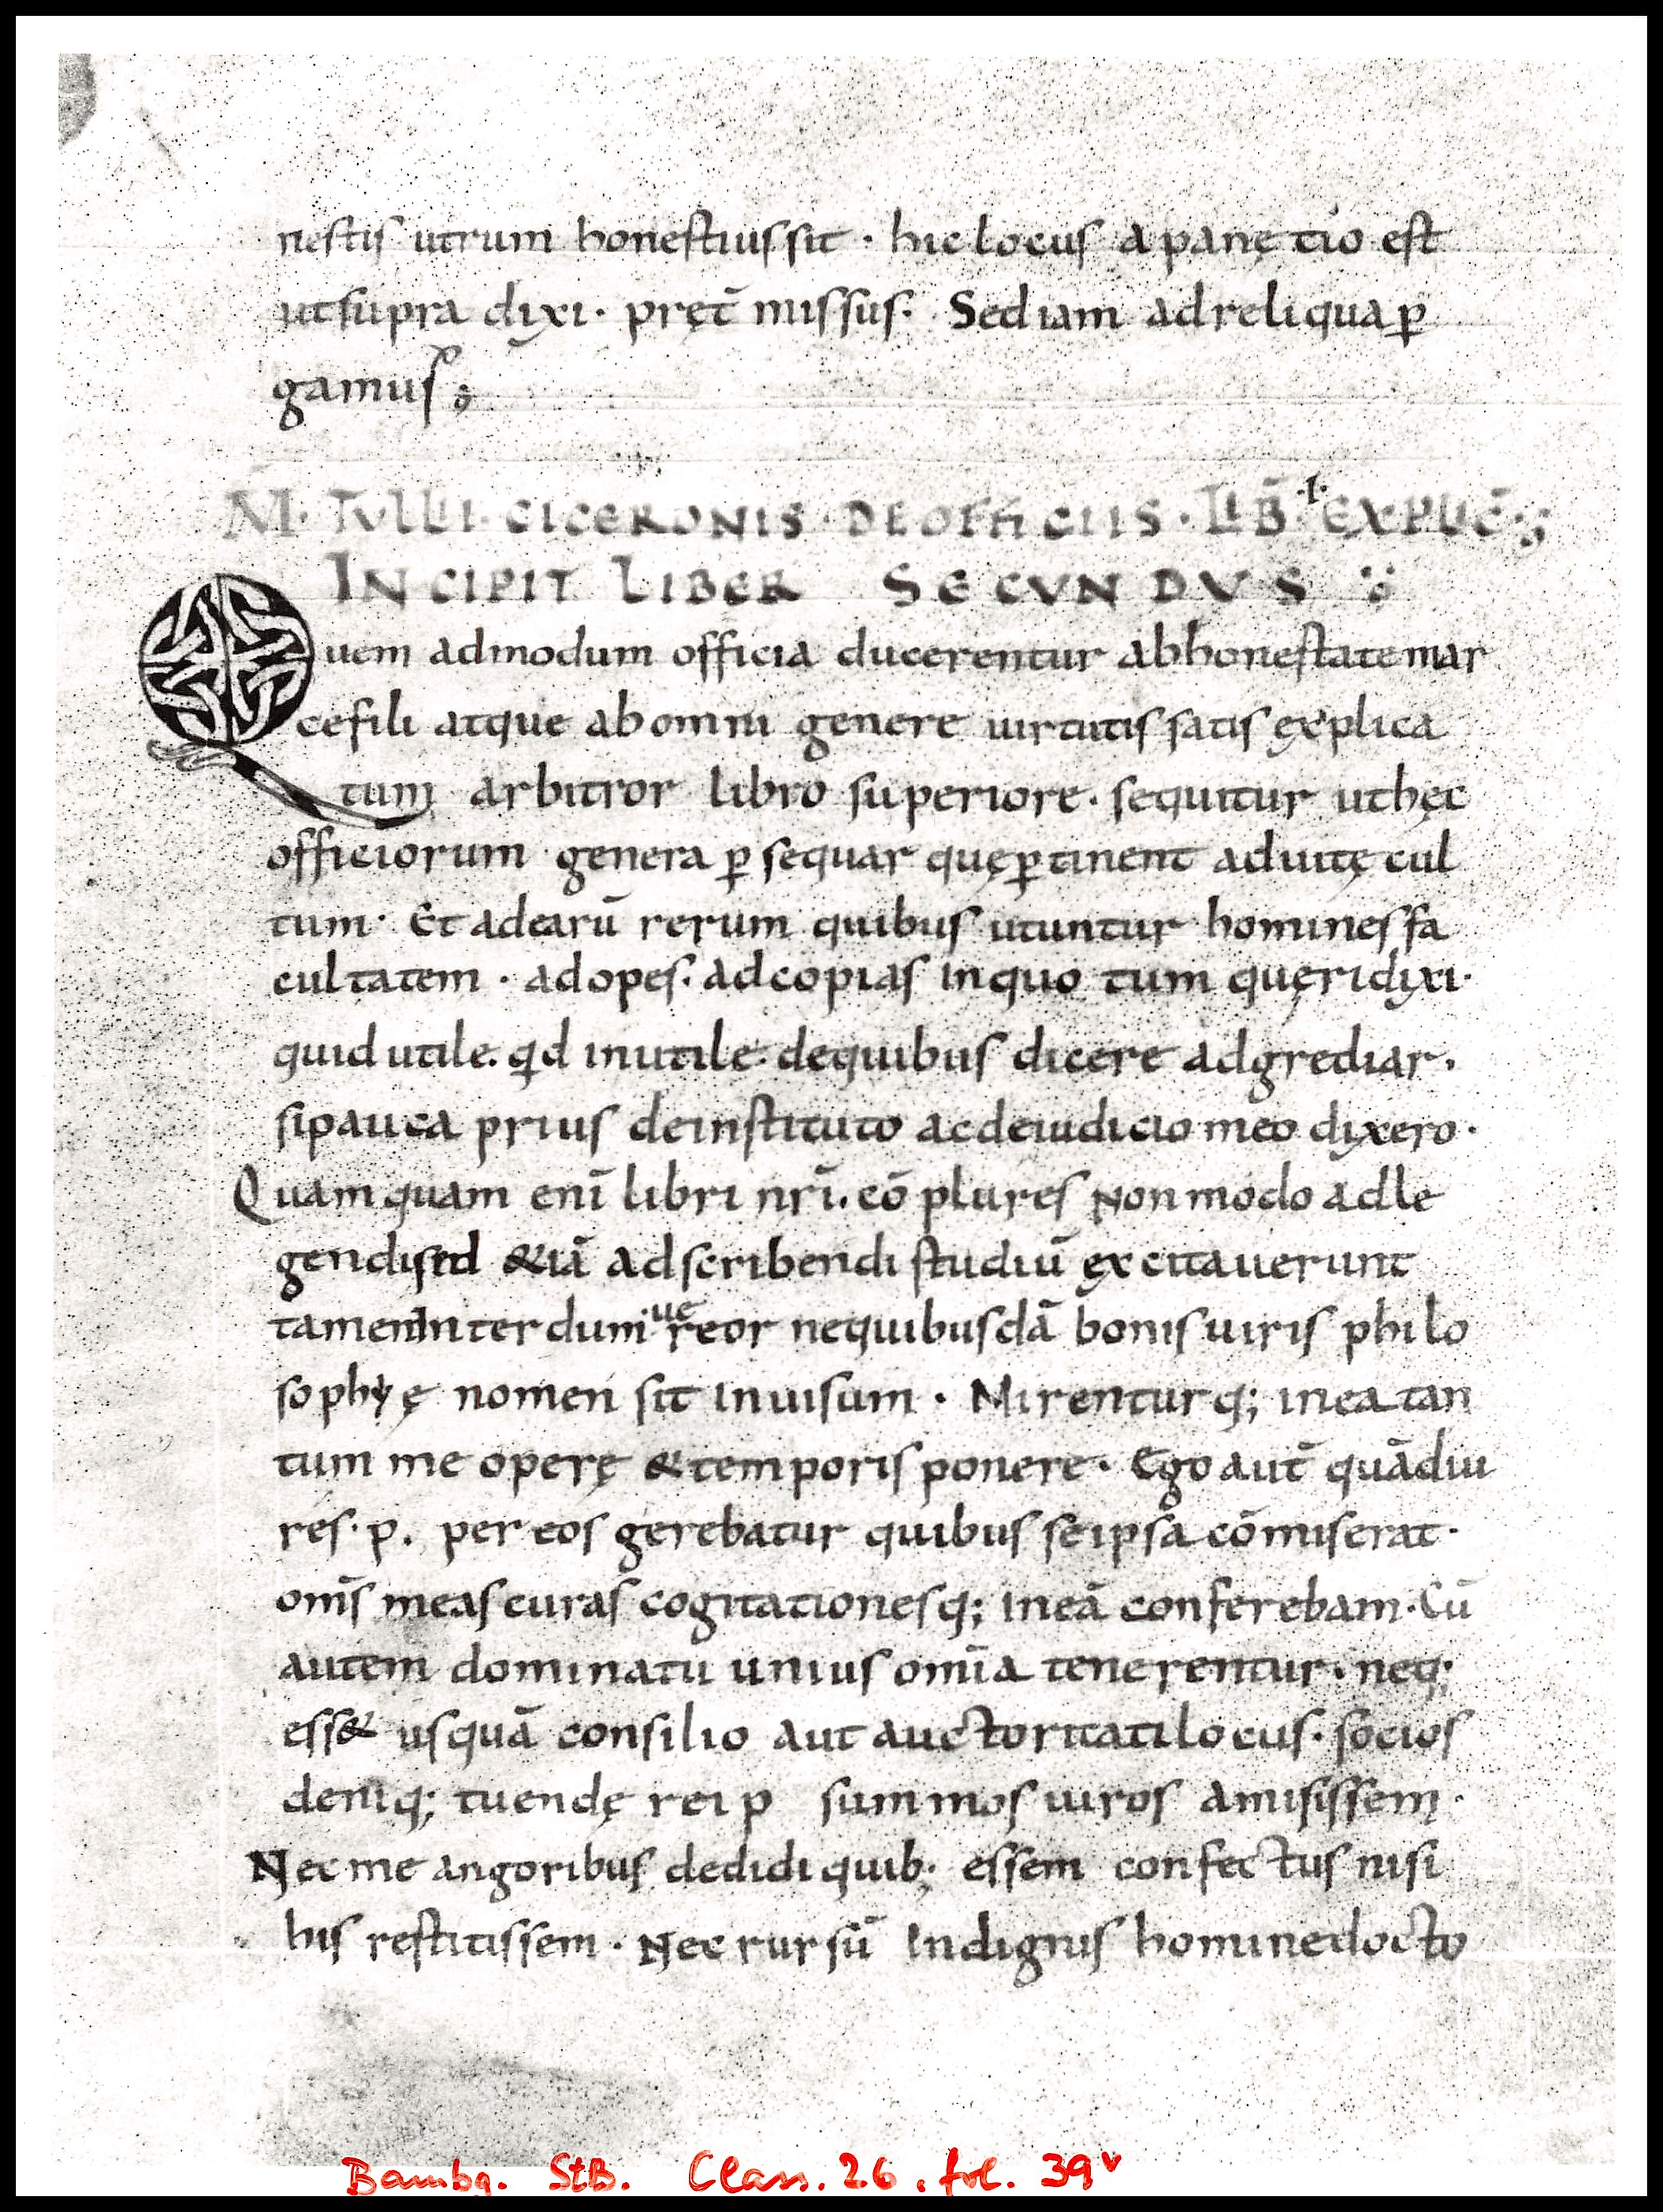 nestis utrum honestius sit · hic locus a panętio est
ut supra dixi · pręt̄ missus · Sed iam ad reliqua ꝑ
gamus;
M · TVLLI · CICERONIS · DE OFFICIIS · LIB̄ · I · EXPLIC̄ ·;
INCIPIT LIBER SECVNDVS
Quem admodum officia ducerentur ab honestate mar
ce fili atque ab omni genere uirtutis satis explica
tum arbitror libro superiore · sequitur ut hęc
officiorum genera ꝑsequar quę ꝑtinent ad uitę cul
tum · Et ad earū rerum quibus utuntur homines fa
cultatem · ad opes · ad copias in quo tum quęri dixi ·
quid utile · qd inutile · de quibus dicere adgrediar ·
si pauca prius de instituto ac de iudicio meo dixero ·
Quamquam enī libri nr̄i · cō plures Non modo ad le
gendi sed &iā ad scribendi studiū excitauerunt
tamen Interdum uereor ne quibusdā bonis uiris philo
sophyę nomen sit inuisum · Mirenturq; in ea tan
tum me operę & temporis ponere · Ego aut̄ quādiu
res · p · per eos gerebatur quibus se ipsa cōmiserat ·
om̄s meas curas cogitationesq; in eā conferebam · Cū
autem dominatu unius om̄ia tenerentur · neq;
ess& usquā consilio aut auctoritati locus · socios
deniq; tuendę rei p summos uiros amisissem ·
Nec me angoribus dedidi quib; essem confectus nisi
his restitissem · Nec rursū Indignus homine docto
Bambg. StB. Class. 26. fol. 39ᵛ